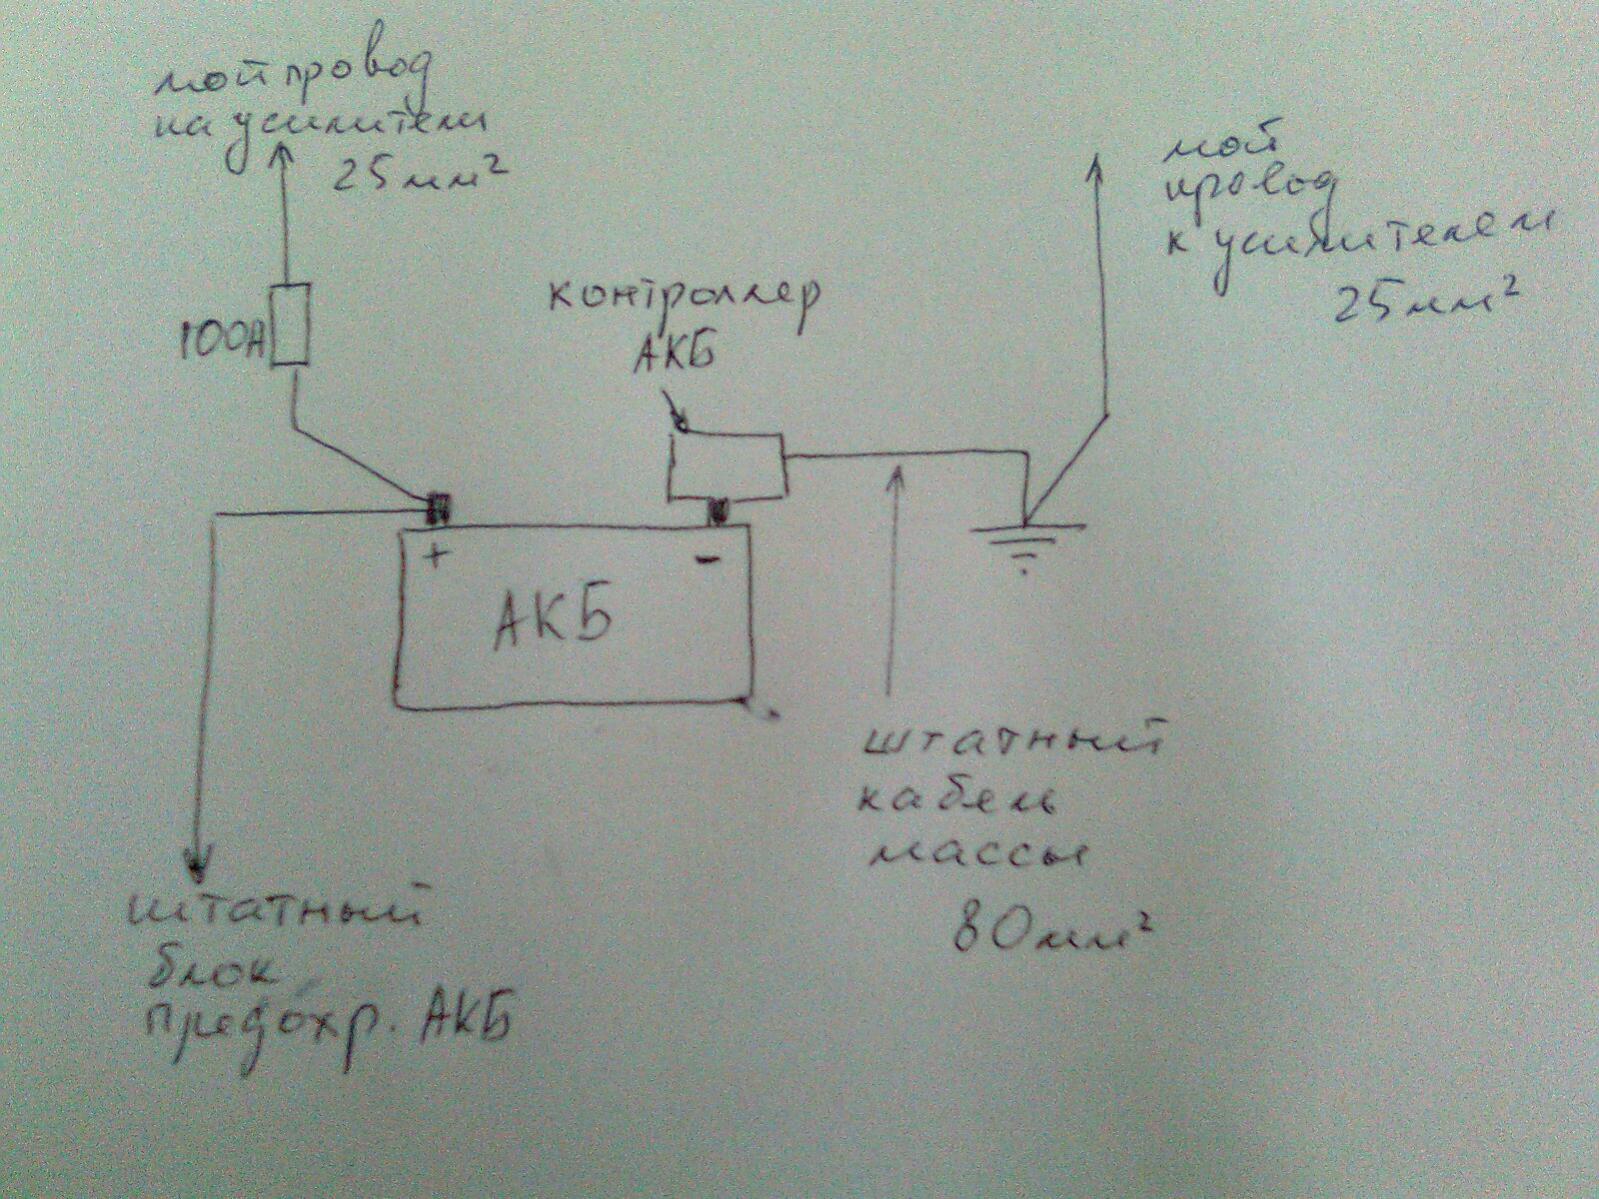 мой провод
на усилители
25мм²
100А
контроллер
АКБ
мой
провод
к усилителем
25мм²
+
-
АКБ
штатный
кабель
массы
80мм²
штатный
блок
предохр. АКБ